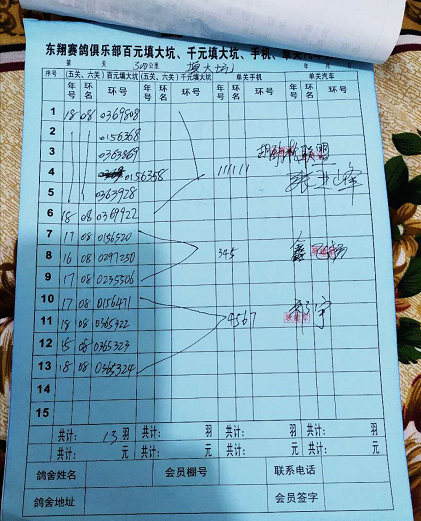 东翔赛鸽俱乐部百元填大坑、千元填大坑、手机、单关汽车
第 关 300公里 填大坑 年 月
序号 (五关、六关)百元填大坑 (五关、六关)千元填大坑 单关手机 单关汽车
年号 环名 环号 年号 环名 环号 年号 环名 环号 年号 环名 环号
1 18 08 0369808
2 0156368
3 0363869 联盟
4 0156358 111111
5 0363928
6 18 08 0369922
7 17 08 0156520
8 16 08 0297250 345 鑫
9 17 08 0235506
10 17 08 0156471
11 18 08 0365322 4567 宇
12 15 08 0365323
13 18 08 0365324
14
15
共计: 13 羽 共计: 羽 共计: 羽 共计: 羽
共计: 元 共计: 元 共计: 元 共计: 元
鸽舍姓名 会员棚号 联系电话
鸽舍地址 会员签字